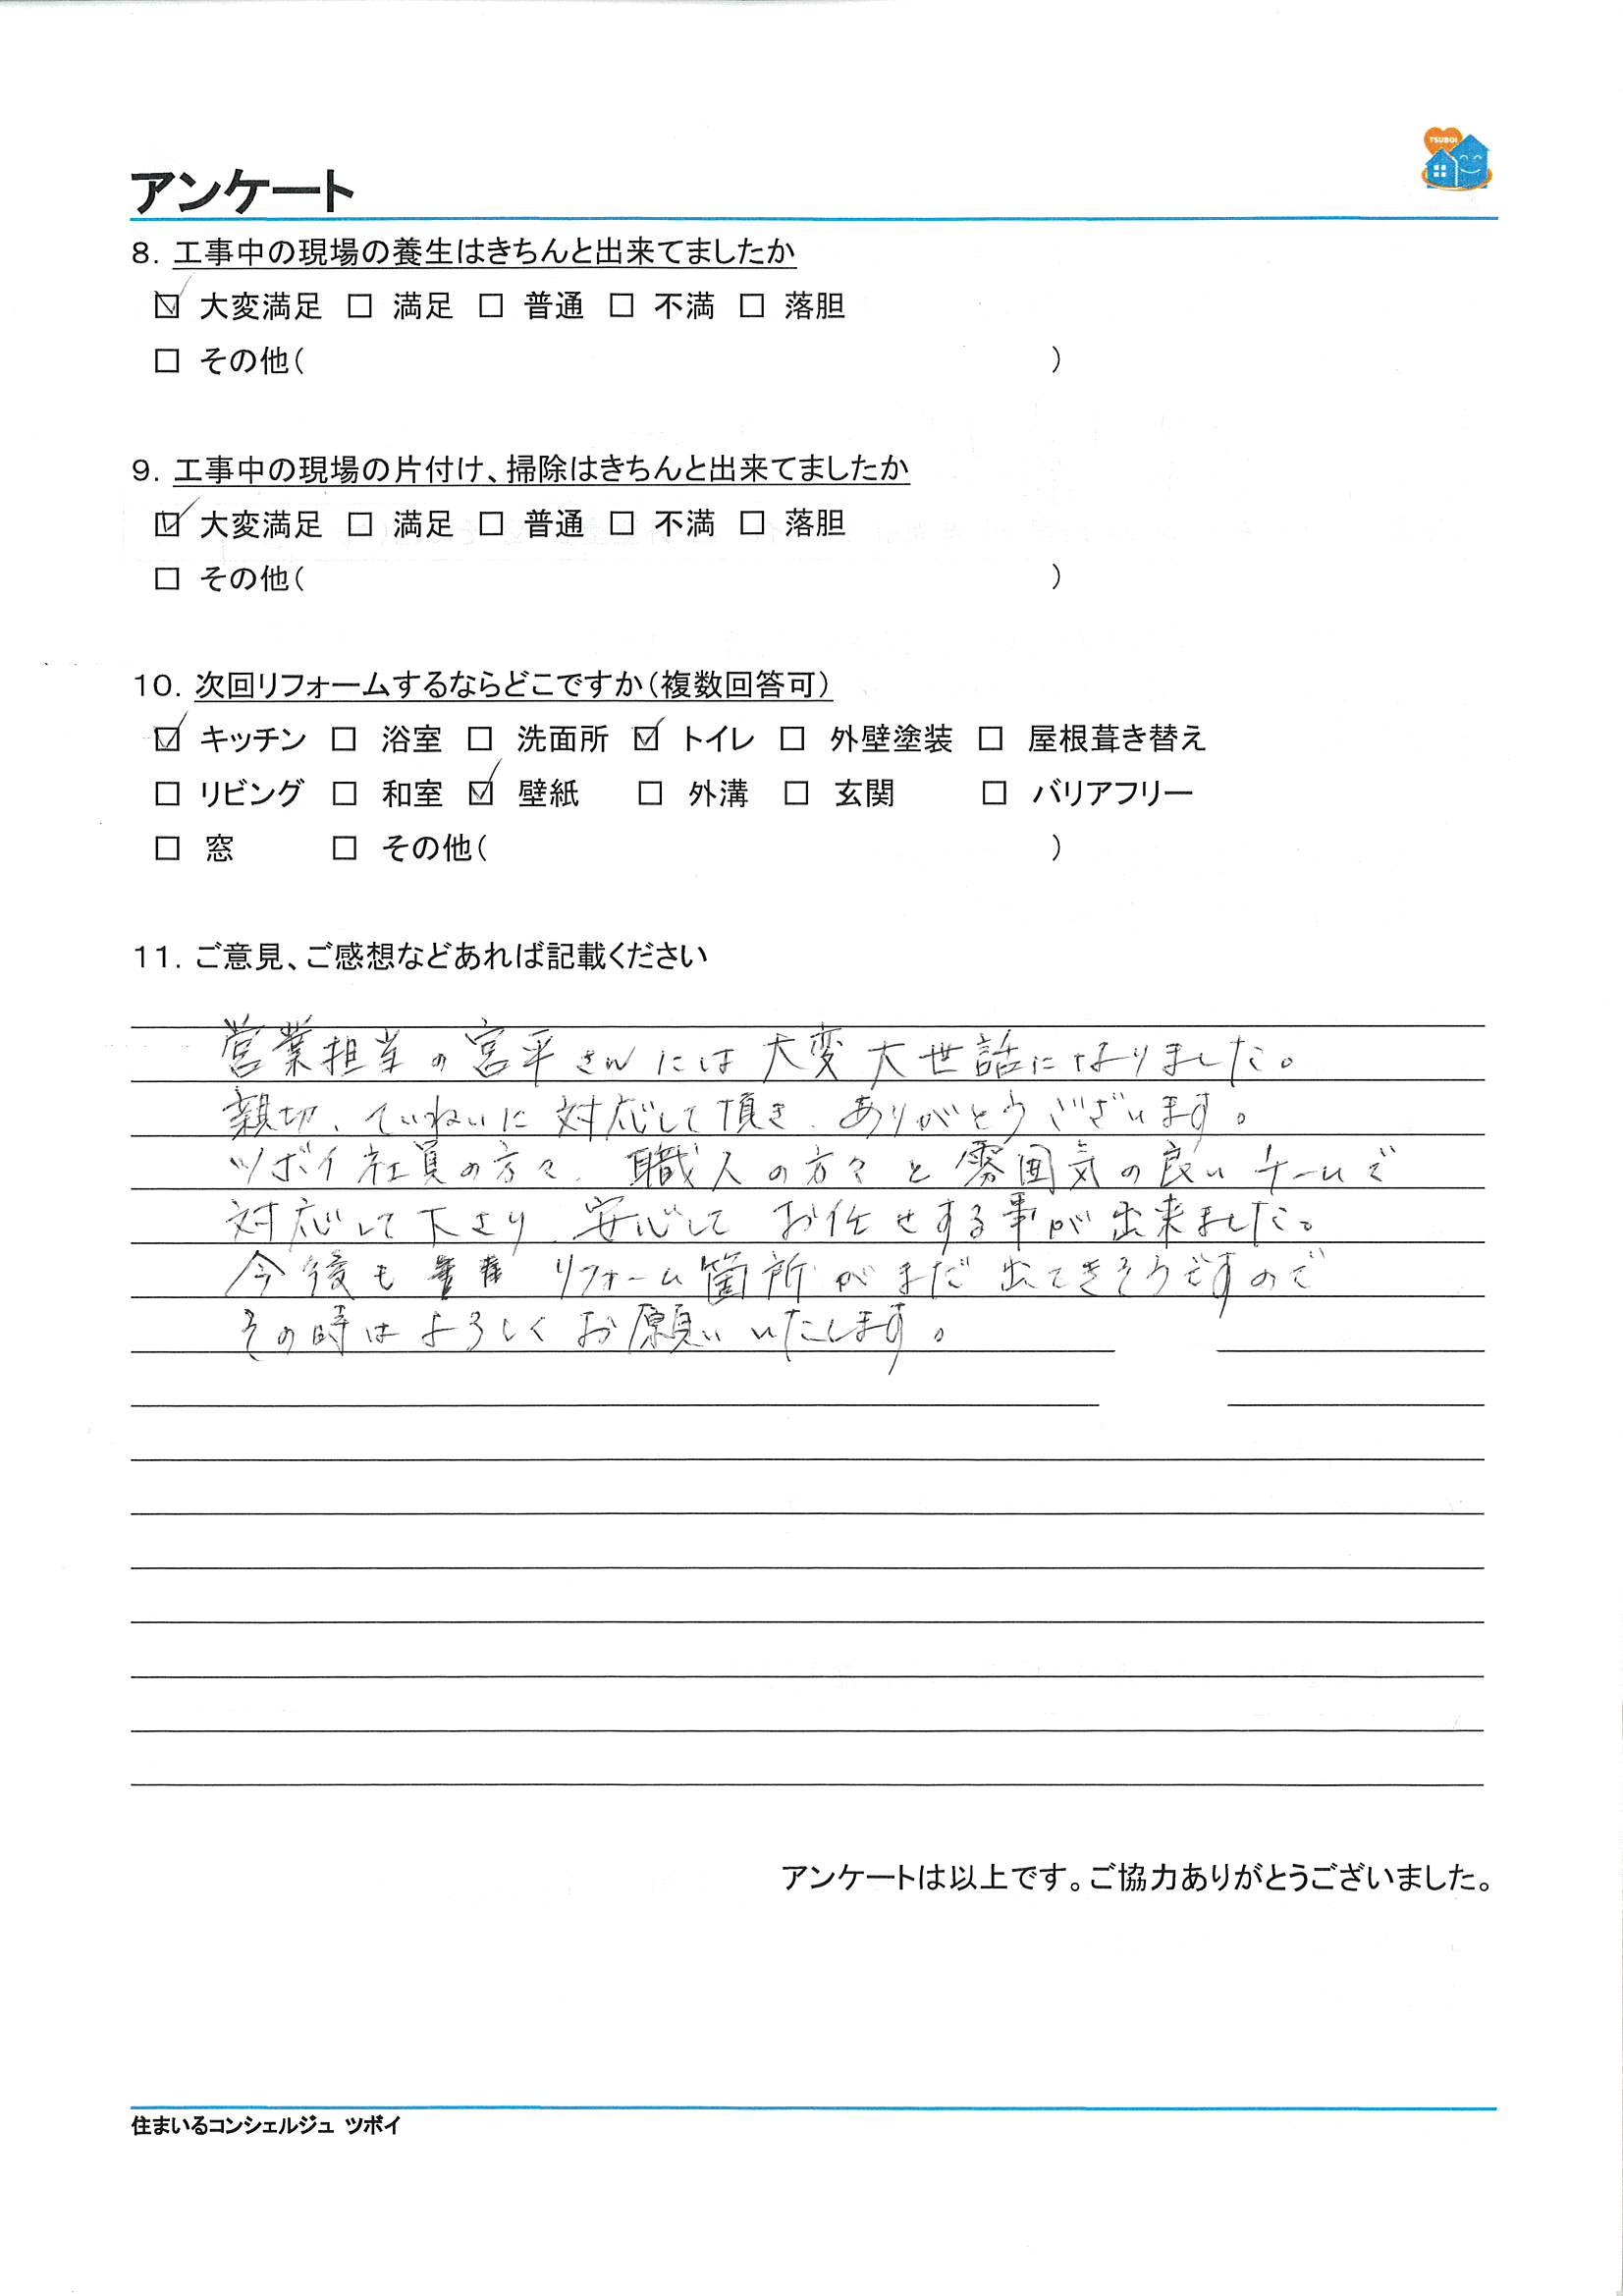 TSUBOI
アンケート
8. 工事中の現場の養生はきちんと出来てましたか
☑ 大変満足 □ 満足 □ 普通 □ 不満 □ 落胆
□ その他( )
9. 工事中の現場の片付け、掃除はきちんと出来てましたか
☑ 大変満足 □ 満足 □ 普通 □ 不満 □ 落胆
□ その他( )
10. 次回リフォームするならどこですか(複数回答可)
☑ キッチン □ 浴室 □ 洗面所 ☑ トイレ □ 外壁塗装 □ 屋根葺き替え
□ リビング □ 和室 ☑ 壁紙 □ 外溝 □ 玄関 □ バリアフリー
□ 窓 □ その他( )
11. ご意見、ご感想などあれば記載ください
営業担当の宮平さんには大変大世話になりました。
親切、ていねいに対応して頂き、ありがとうございます。
ツボイ社員の方々、職人の方々と雰囲気の良いチームで
対応して下さり、安心してお任せする事が出来ました。
今後も リフォーム箇所がまだ出てきそうですので
その時はよろしくお願いいたします。
アンケートは以上です。ご協力ありがとうございました。
住まいるコンシェルジュ ツボイ